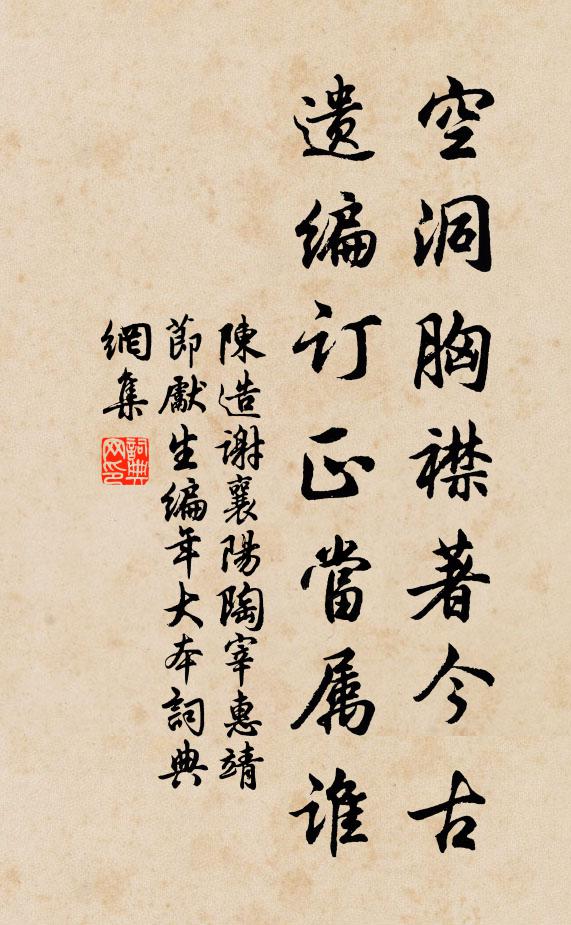 空洞胸襟著今古
遗编订正當属谁
陳造謝襄陽陶宰惠靖
節獻生編年大本詞典
網集
詞典网印